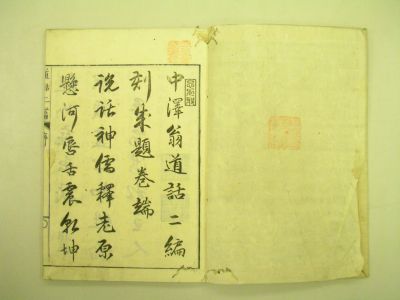 中澤翁道話二編
刻成題卷端
説話神儒釋老原
懸河唇舌震乾坤